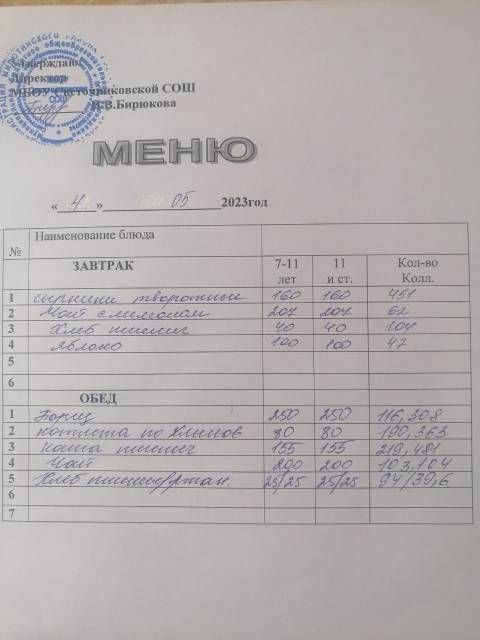 Утверждаю:
Директор
МБОУ Светочниковской СОШ
Н.В.Бирюкова
МЕНЮ
« 4 » 05 2023год
№ Наименование блюда
ЗАВТРАК 7-11 лет 11 и ст. Кол-во Колл.
1 сырники творожные 160 160 451
2 Чай с лимоном 207 207 62
3 Хлеб пшенич 40 40 104
4 яблоко 100 100 47
5
6
ОБЕД
1 Борщ 250 250 116,308
2 котлета по Хлынов 80 80 190,363
3 каша пшенич 155 155 219,481
4 Чай 200 200 103,104
5 Хлеб пшенич/ржан. 25/25 25/25 94/39,6
6
7